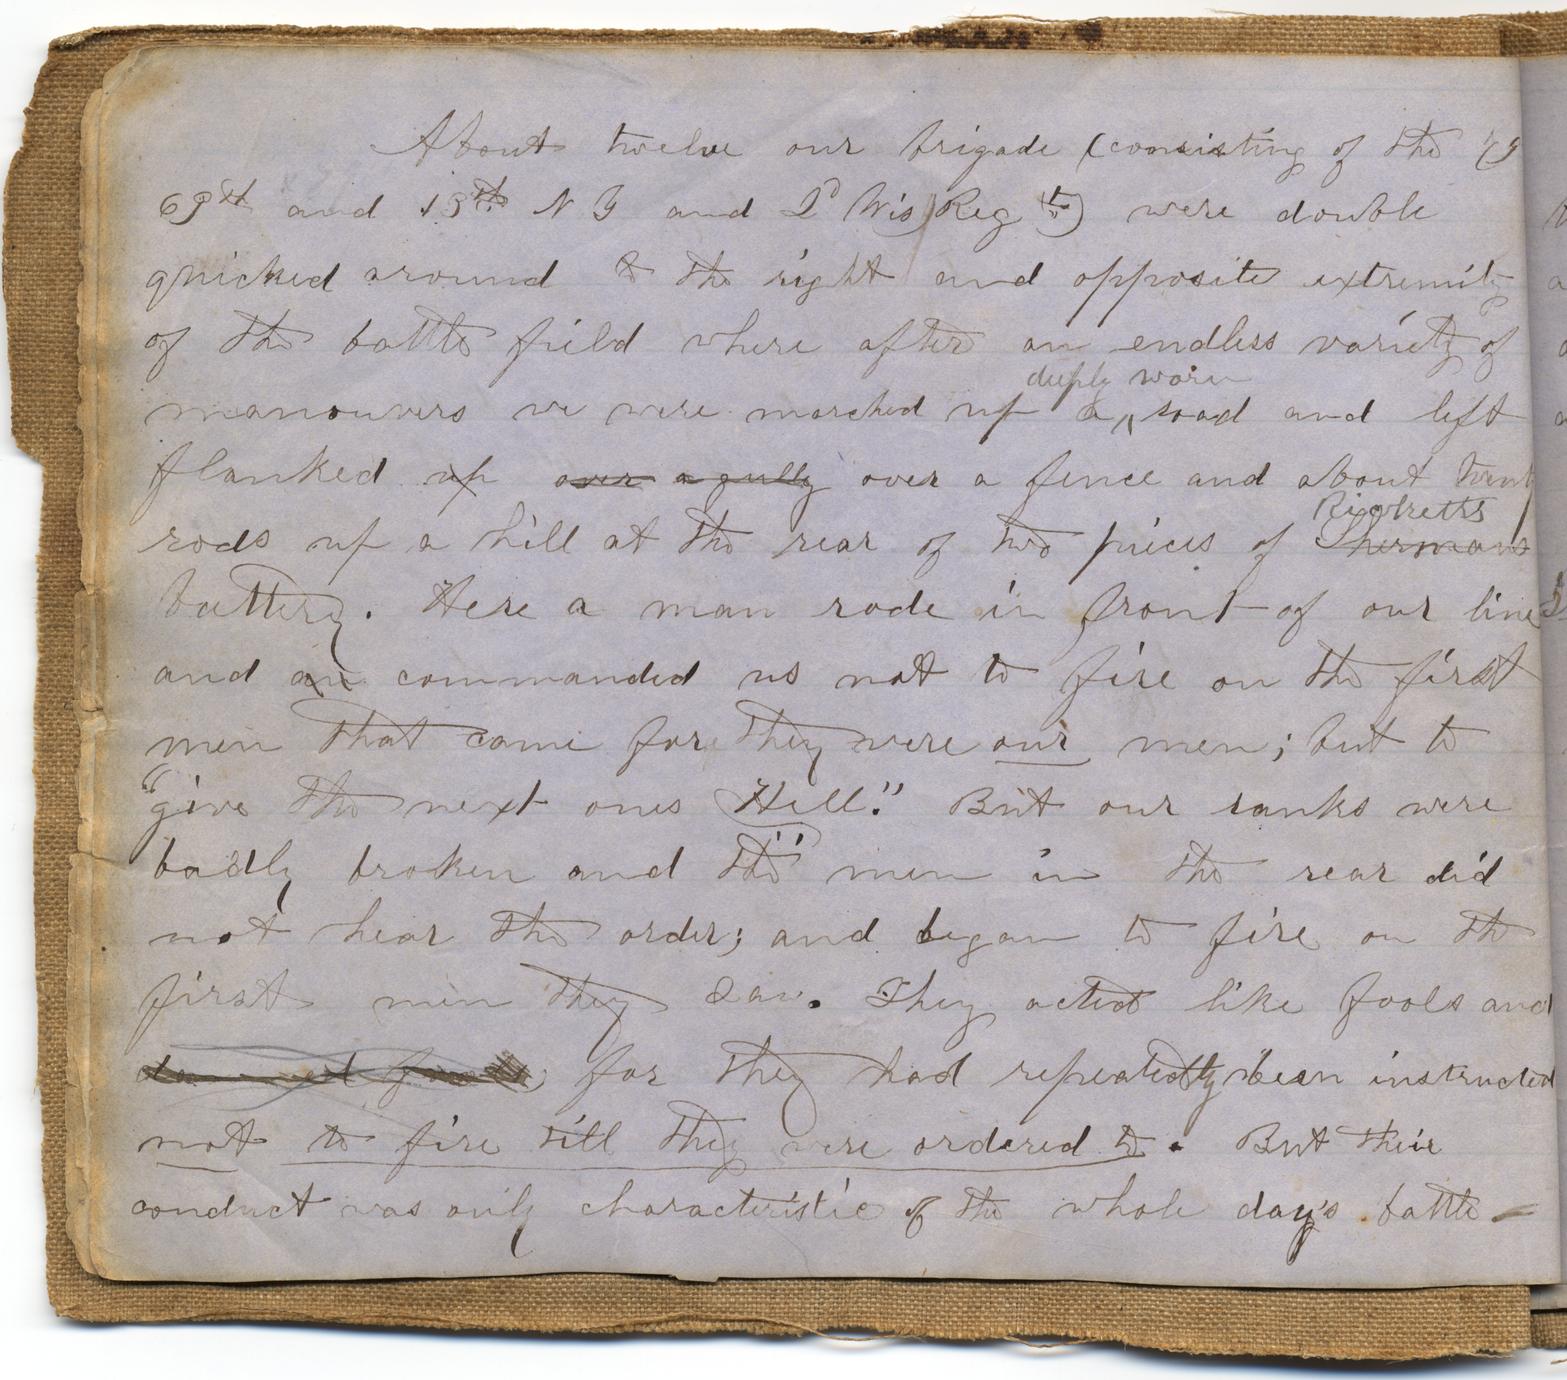 About twelve our brigade (consisting of the 79
69th and 13th N Y and 2d Wis) Reg ts) were double
quicked around to the right and opposite extremity
of the battle field where after an endless variety of
deeply worn
manouvers we were marched up a ^ road and left
flanked up over a gully over a fence and about twenty
Ricketts
rods up a hill at the rear of two pieces of Shermans
battery. Here a man rode in front of our line
and an commanded us not to fire on the first
men that came for they were our men; but to
"give the next ones Hell!" But our ranks were
badly broken and the men in the rear did
not hear the order; and began to fire on the
first men they saw. They acted like fools and
damned fools, for they had repeatedly been instructed
not to fire till they were ordered to. But their
conduct was only characteristic of the whole day's battle –